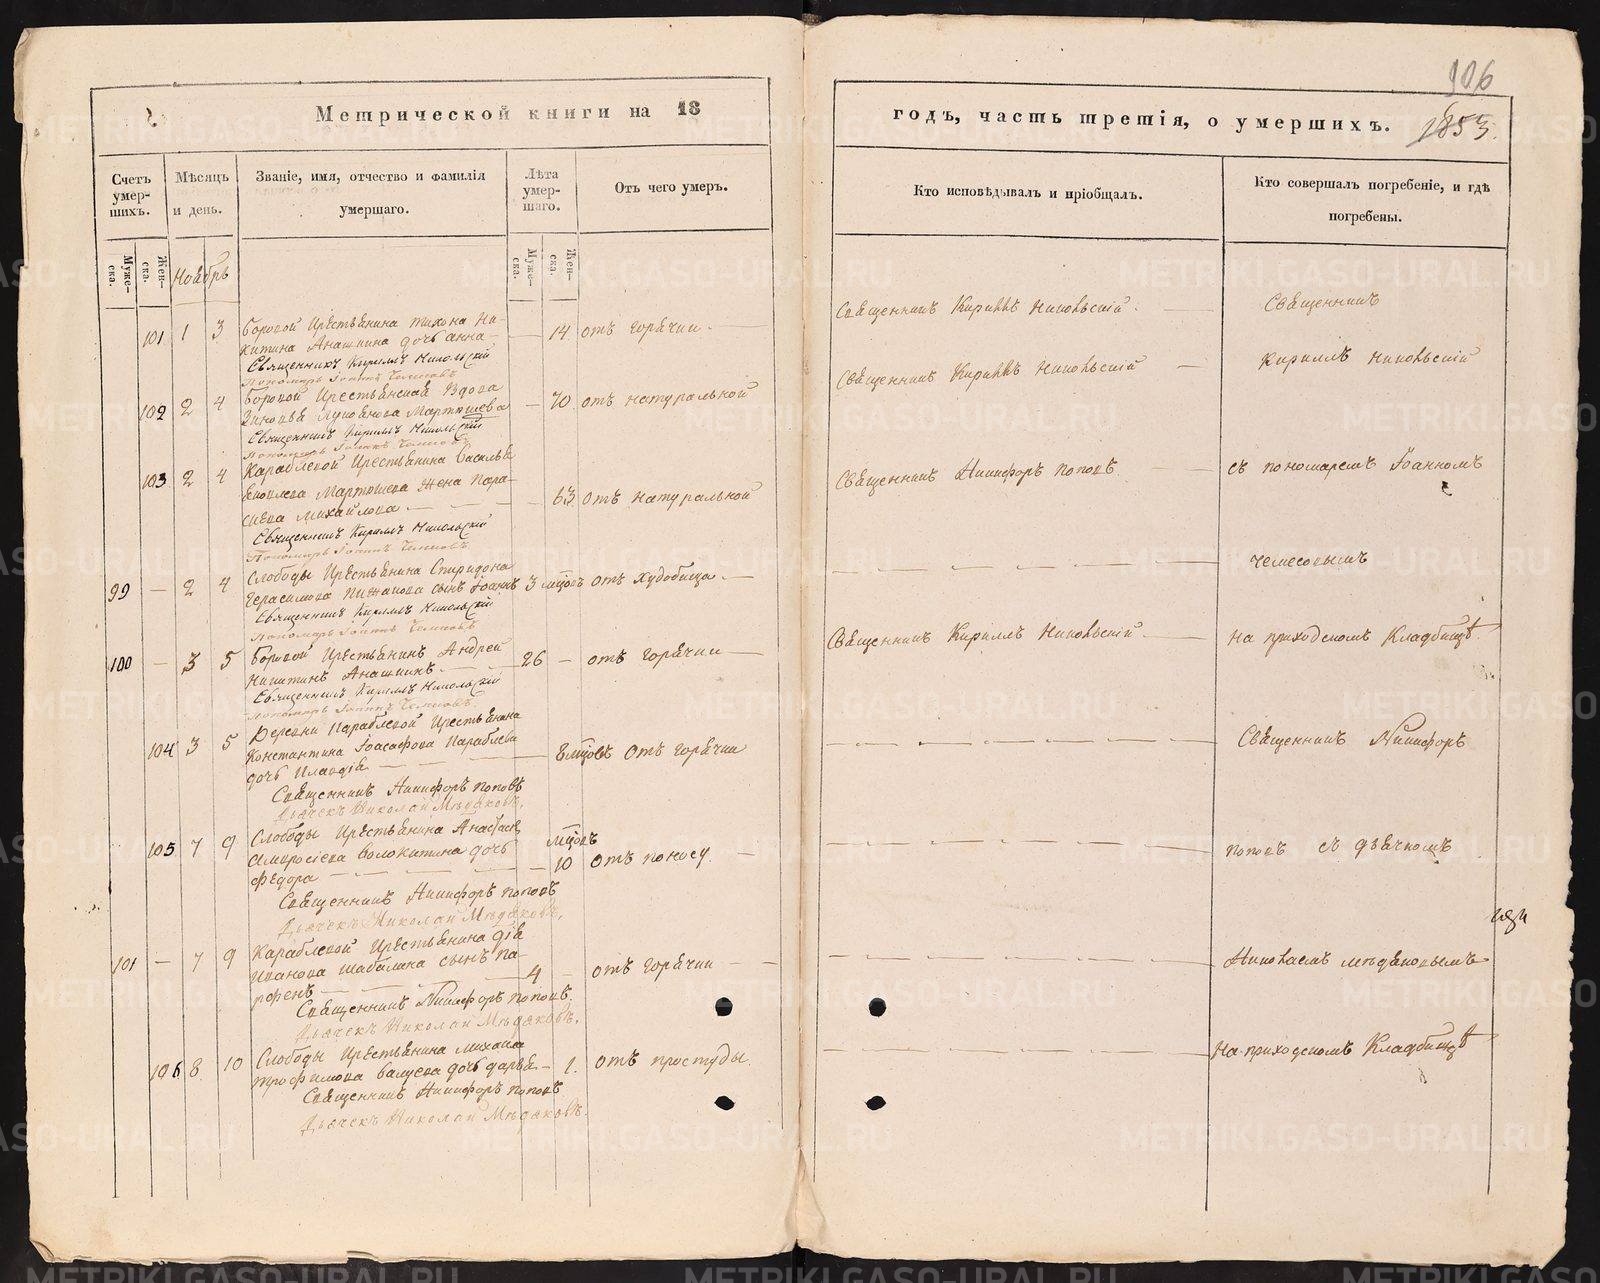 906
Метрической книги на 18
годъ, часть третія, о умершихъ. 1853.
Счетъ умер-шихъ.
Мѣсяцъ и день.
Званіе, имя, отчество и фамилія умершаго.
Лѣта умер-шаго.
Отъ чего умеръ.
Кто исповѣдывалъ и пріобщалъ.
Кто совершалъ погребеніе, и гдѣ погребены.
Муже-ска.
Жен-ска.
Муже-ска.
Жен-ска.
Ноябрь
101 1 3 Боровой крестьянина Тихона Ни-
китина Анашкина дочь Анна 14 отъ горячки
Священникъ Кириллъ Никольскій
Пономарь Іоаннъ
102 2 4 Боровой крестьянская вдова
Лукоянова Мартюшева 70 отъ натуральной
Священникъ Кириллъ Никольскій
Пономарь Іоаннъ
103 2 4 Караблевой крестьянина Василья
Яковлева Мартюшева жена Пара-
скева Михайлова 63 отъ натуральной
Священникъ Кириллъ Никольскій
Пономарь Іоаннъ
99 2 4 Слободы крестьянина Спиридона
Герасимова Пижанова сынъ Іоаннъ 3 мцовъ отъ худобища
Священникъ Кириллъ Никольскій
Пономарь Іоаннъ
100 3 5 Боровой крестьянинъ Андрей
Никитинъ Анашкинъ 26 отъ горячки
Священникъ Кириллъ Никольскій
Пономарь Іоаннъ
104 3 5 Деревни Караблевой крестьянина
Константина Іоасафова Караблева
дочь Клавдія 8 мцовъ отъ горячки
Священникъ Никифоръ Поповъ
Дьячекъ Николай Мѣдяковъ,
105 7 9 Слободы крестьянина
Амвросіева Волокитина дочь мцовъ
Федора 10 отъ поносу
Священникъ Никифоръ Поповъ
Дьячекъ Николай Мѣдяковъ,
101 7 9 Караблевой крестьянина
Иванова Шабалина сынъ Па-
рфенъ 4 отъ горячки
Священникъ Никифоръ Поповъ
Дьячекъ Николай Мѣдяковъ,
106 8 10 Слободы крестьянина Михаила
Трофимова Валуева дочь Дарья 1. отъ простуды
Священникъ Никифоръ Поповъ
Дьячекъ Николай Мѣдяковъ.
Священникъ Кириллъ Никольскій
Священникъ Кириллъ Никольскій
Священникъ Никифоръ Поповъ
Священникъ Кириллъ Никольскій
Священникъ
Кириллъ Никольскій
съ пономаремъ Іоанномъ
Чемесовымъ
на приходскомъ кладбищѣ.
Священникъ Никифоръ
Поповъ съ дьячкомъ
Николаемъ Мѣдяковымъ
На приходскомъ кладбищѣ
METRIKI.GASO-URAL.RU